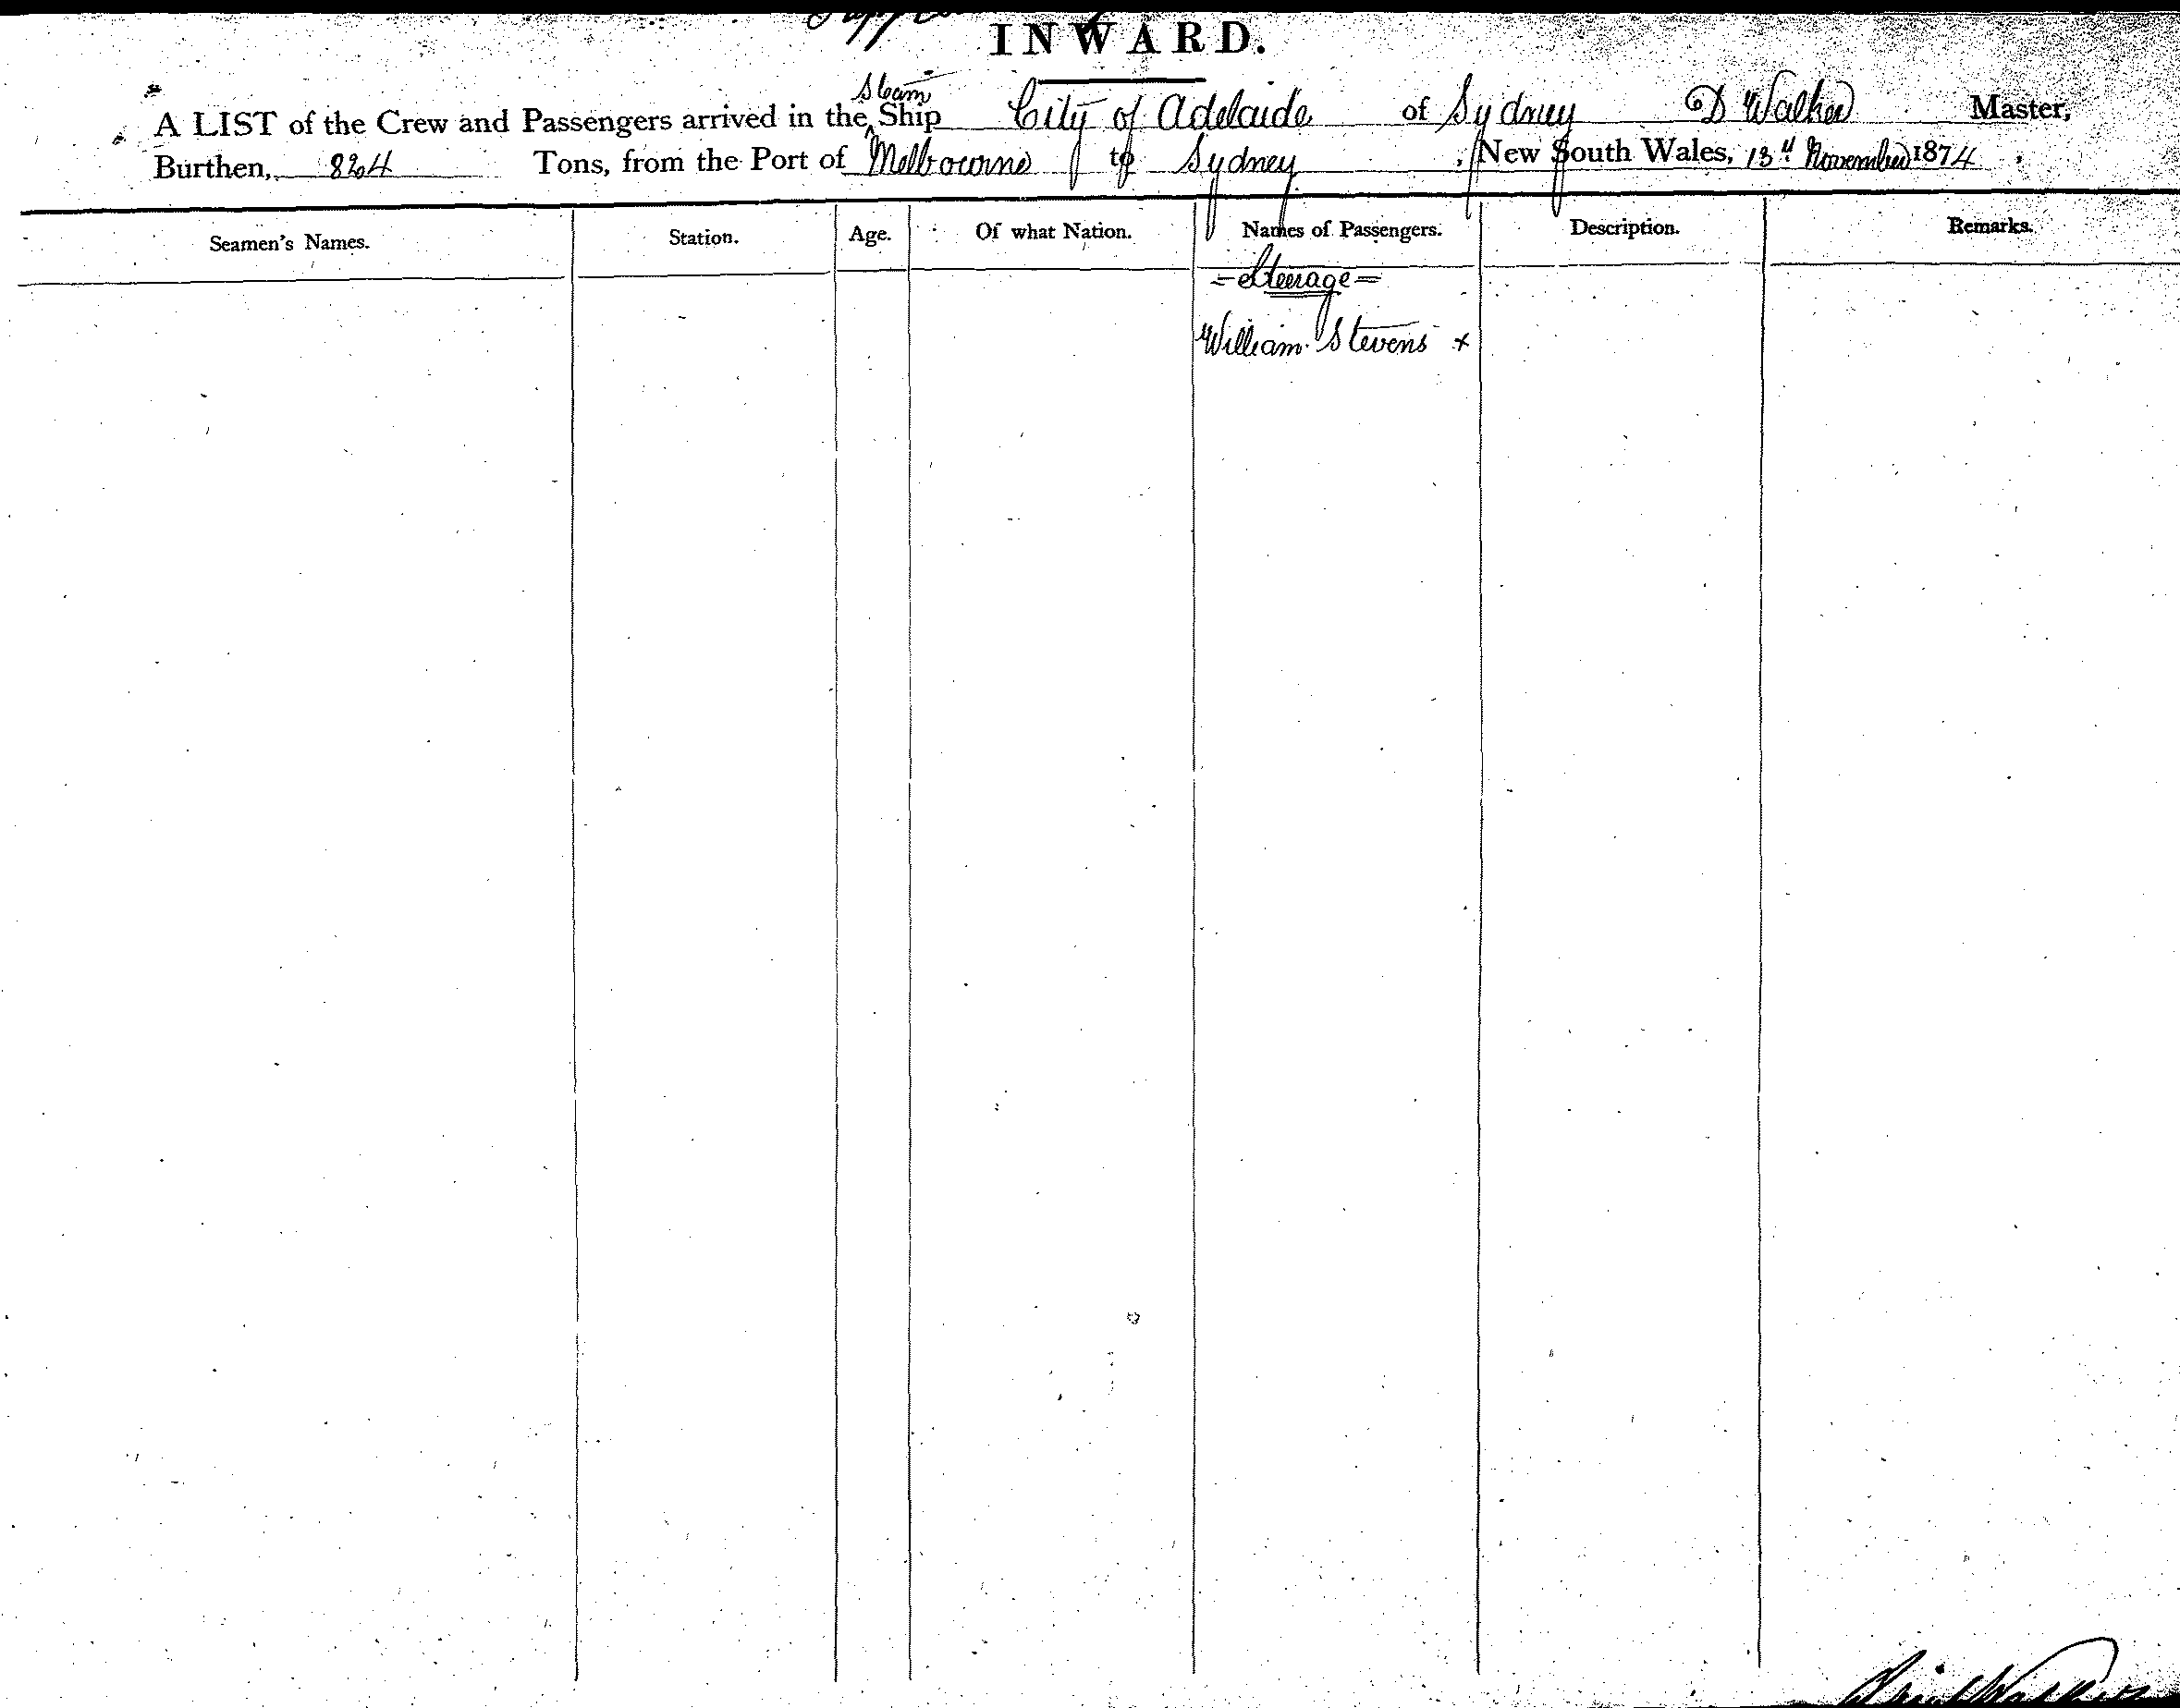 INWARD.
Steam
A LIST of the Crew and Passengers arrived in the Ship City of Adelaide of Sydney D Walker Master,
Burthen, 824 Tons, from the Port of Melbourne to Sydney, New South Wales, 13th November 1874
Seamen's Names. Station. Age. Of what Nation. Names of Passengers. Description. Remarks.
=Steerage=
William Stevens x